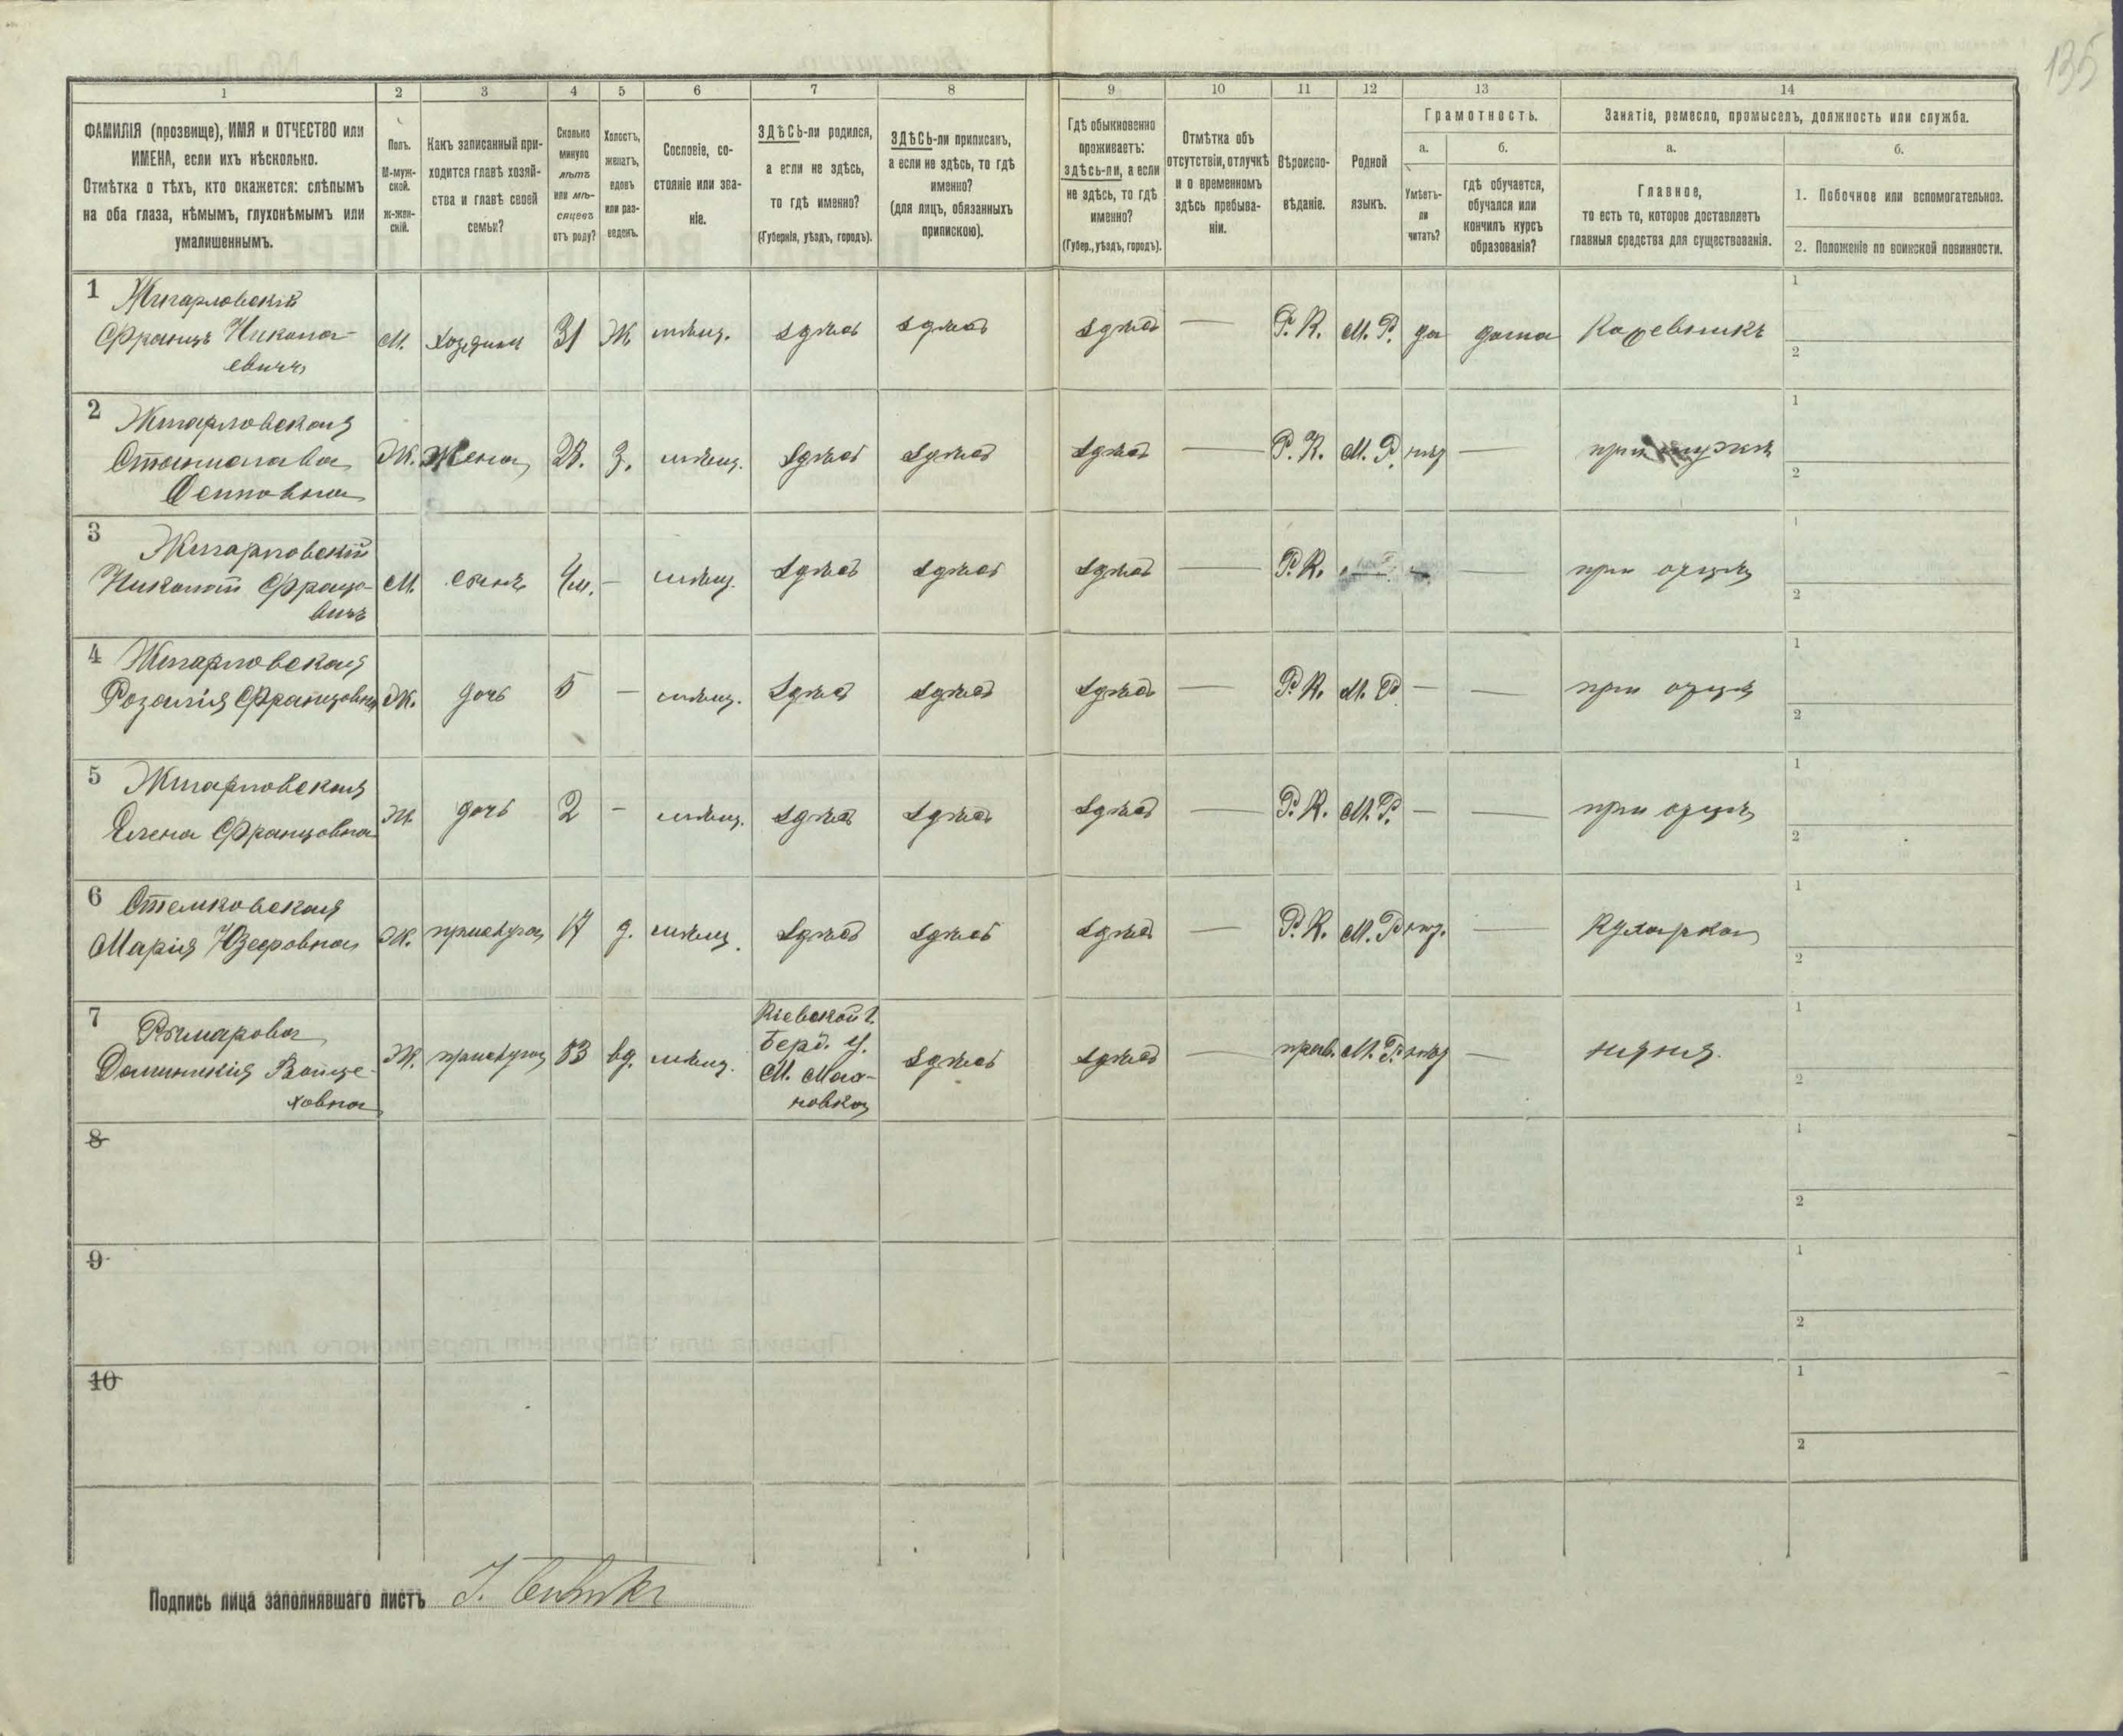 135
1 2 3 4 5 6 7 8 9 10 11 12 13 14
ФАМИЛІЯ (прозвище), ИМЯ и ОТЧЕСТВО или
ИМЕНА, если ихъ нѣсколько.
Отмѣтка о тѣхъ, кто окажется: слѣпымъ
на оба глаза, нѣмымъ, глухонѣмымъ или
умалишеннымъ.
Полъ.
М-муж-
ской.
Ж-жен-
скій.
Какъ записанный при-
ходится главѣ хозяй-
ства и главѣ своей
семьи?
Сколько
минуло
лѣтъ
или мѣ-
сяцевъ
отъ роду?
Холостъ,
женатъ,
вдовъ
или раз-
веденъ.
Сословіе, со-
стояніе или зва-
ніе.
ЗДѢСЬ-ли родился,
а если не здѣсь,
то гдѣ именно?
(Губернія, уѣздъ, городъ).
ЗДѢСЬ-ли приписанъ,
а если не здѣсь, то гдѣ
именно?
(для лицъ, обязанныхъ
припискою).
Гдѣ обыкновенно
проживаетъ:
здѣсь-ли, а если
не здѣсь, то гдѣ
именно?
(Губер., уѣздъ, городъ).
Отмѣтка объ
отсутствіи, отлучкѣ
и о временномъ
здѣсь пребыва-
ніи.
Вѣроиспо-
вѣданіе.
Родной
языкъ.
Грамотность.
а.
Умѣетъ-
ли
читать?
б.
гдѣ обучается,
обучался или
кончилъ курсъ
образованія?
Занятіе, ремесло, промыселъ, должность или служба.
а.
Главное,
то есть то, которое доставляетъ
главныя средства для существованія.
б.
1. Побочное или вспомогательное.
2. Положеніе по воинской повинности.
1
Францъ Никола-
евичъ
М. хозяинъ 31 Ж мѣщ. здѣсь здѣсь здѣсь — Р. К. М. Р. да дома 1
2
2
Станислава
Осиповна
Ж. Жена 28. З. мѣщ. здѣсь здѣсь здѣсь — Р. К. М. Р. нѣт — при мужѣ 1
2
3
Николай Франца-
вичъ
М. сынъ 4м. — мѣщ. здѣсь здѣсь здѣсь — Р. К. — — при отцѣ 1
2
4
Розалія Францовна
Ж. дочь 5 — мѣщ. здѣсь здѣсь здѣсь — Р К. М. Р. — — при отцѣ 1
2
5
Елена Францовна
Ж. дочь 2 — мѣщ. здѣсь здѣсь здѣсь — Р. К. М. Р. — — при отцѣ 1
2
6 Стемковская
Марія Юзефовна
Ж. прислуга 17 д. мѣщ. здѣсь здѣсь здѣсь — Р. К. М. Р нѣт. — Кухарка 1
2
7 Рымарова
Доминикія Войце-
ховна
Ж. прислуга 53 вд. мѣщ. Кіевской г.
Берд. у.
М.
новка
здѣсь здѣсь — прав. М. Р. нѣт — няня. 1
2
8 1
2
9 1
2
10 1
2
Подпись лица заполнявшаго листъ